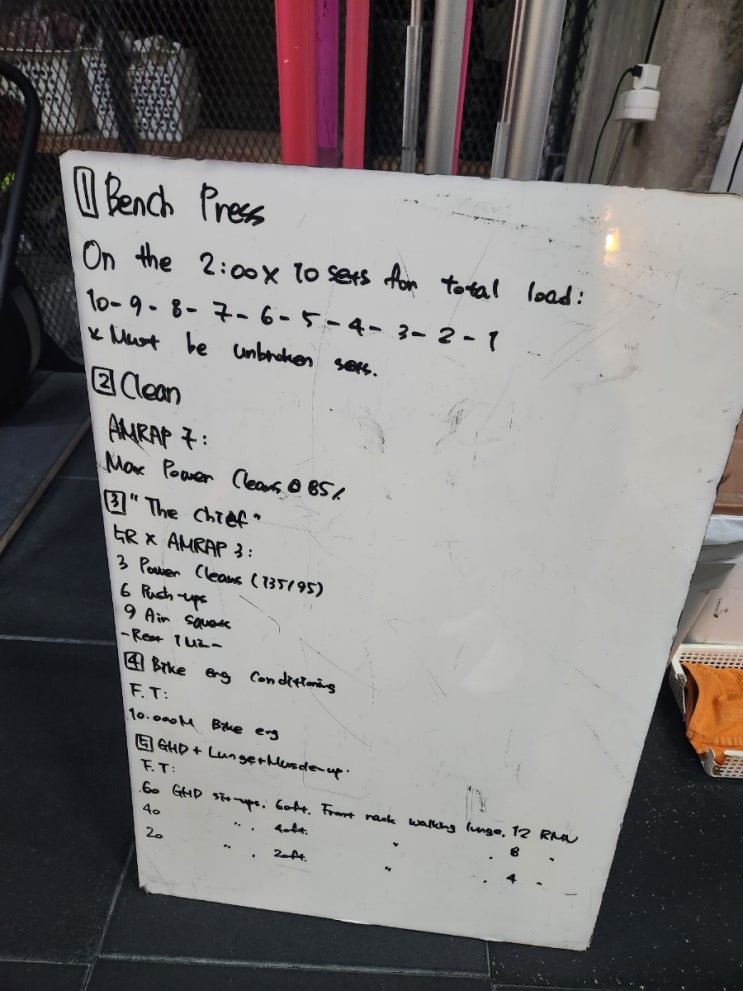 1 Bench Press
On the 2:00 x 10 sets for total load:
10-9-8-7-6-5-4-3-2-1
* Must be unbroken sets.
2 Clean
AMRAP 7:
Max Power Cleans @ 85%
3 "The Chief"
5R x AMRAP 3:
3 Power Cleans (135/95)
6 Push-ups
9 Air squats
-Rest 1
4 Bike erg Conditioning
F.T:
10.000M Bike erg
5 GHD + Lunge + Muscle-up.
F.T:
60 GHD sit-ups. 60ft. Front rack walking lunge. 12 RMU
40 " . 40ft. " . 8 "
20 " . 20ft. " . 4 "